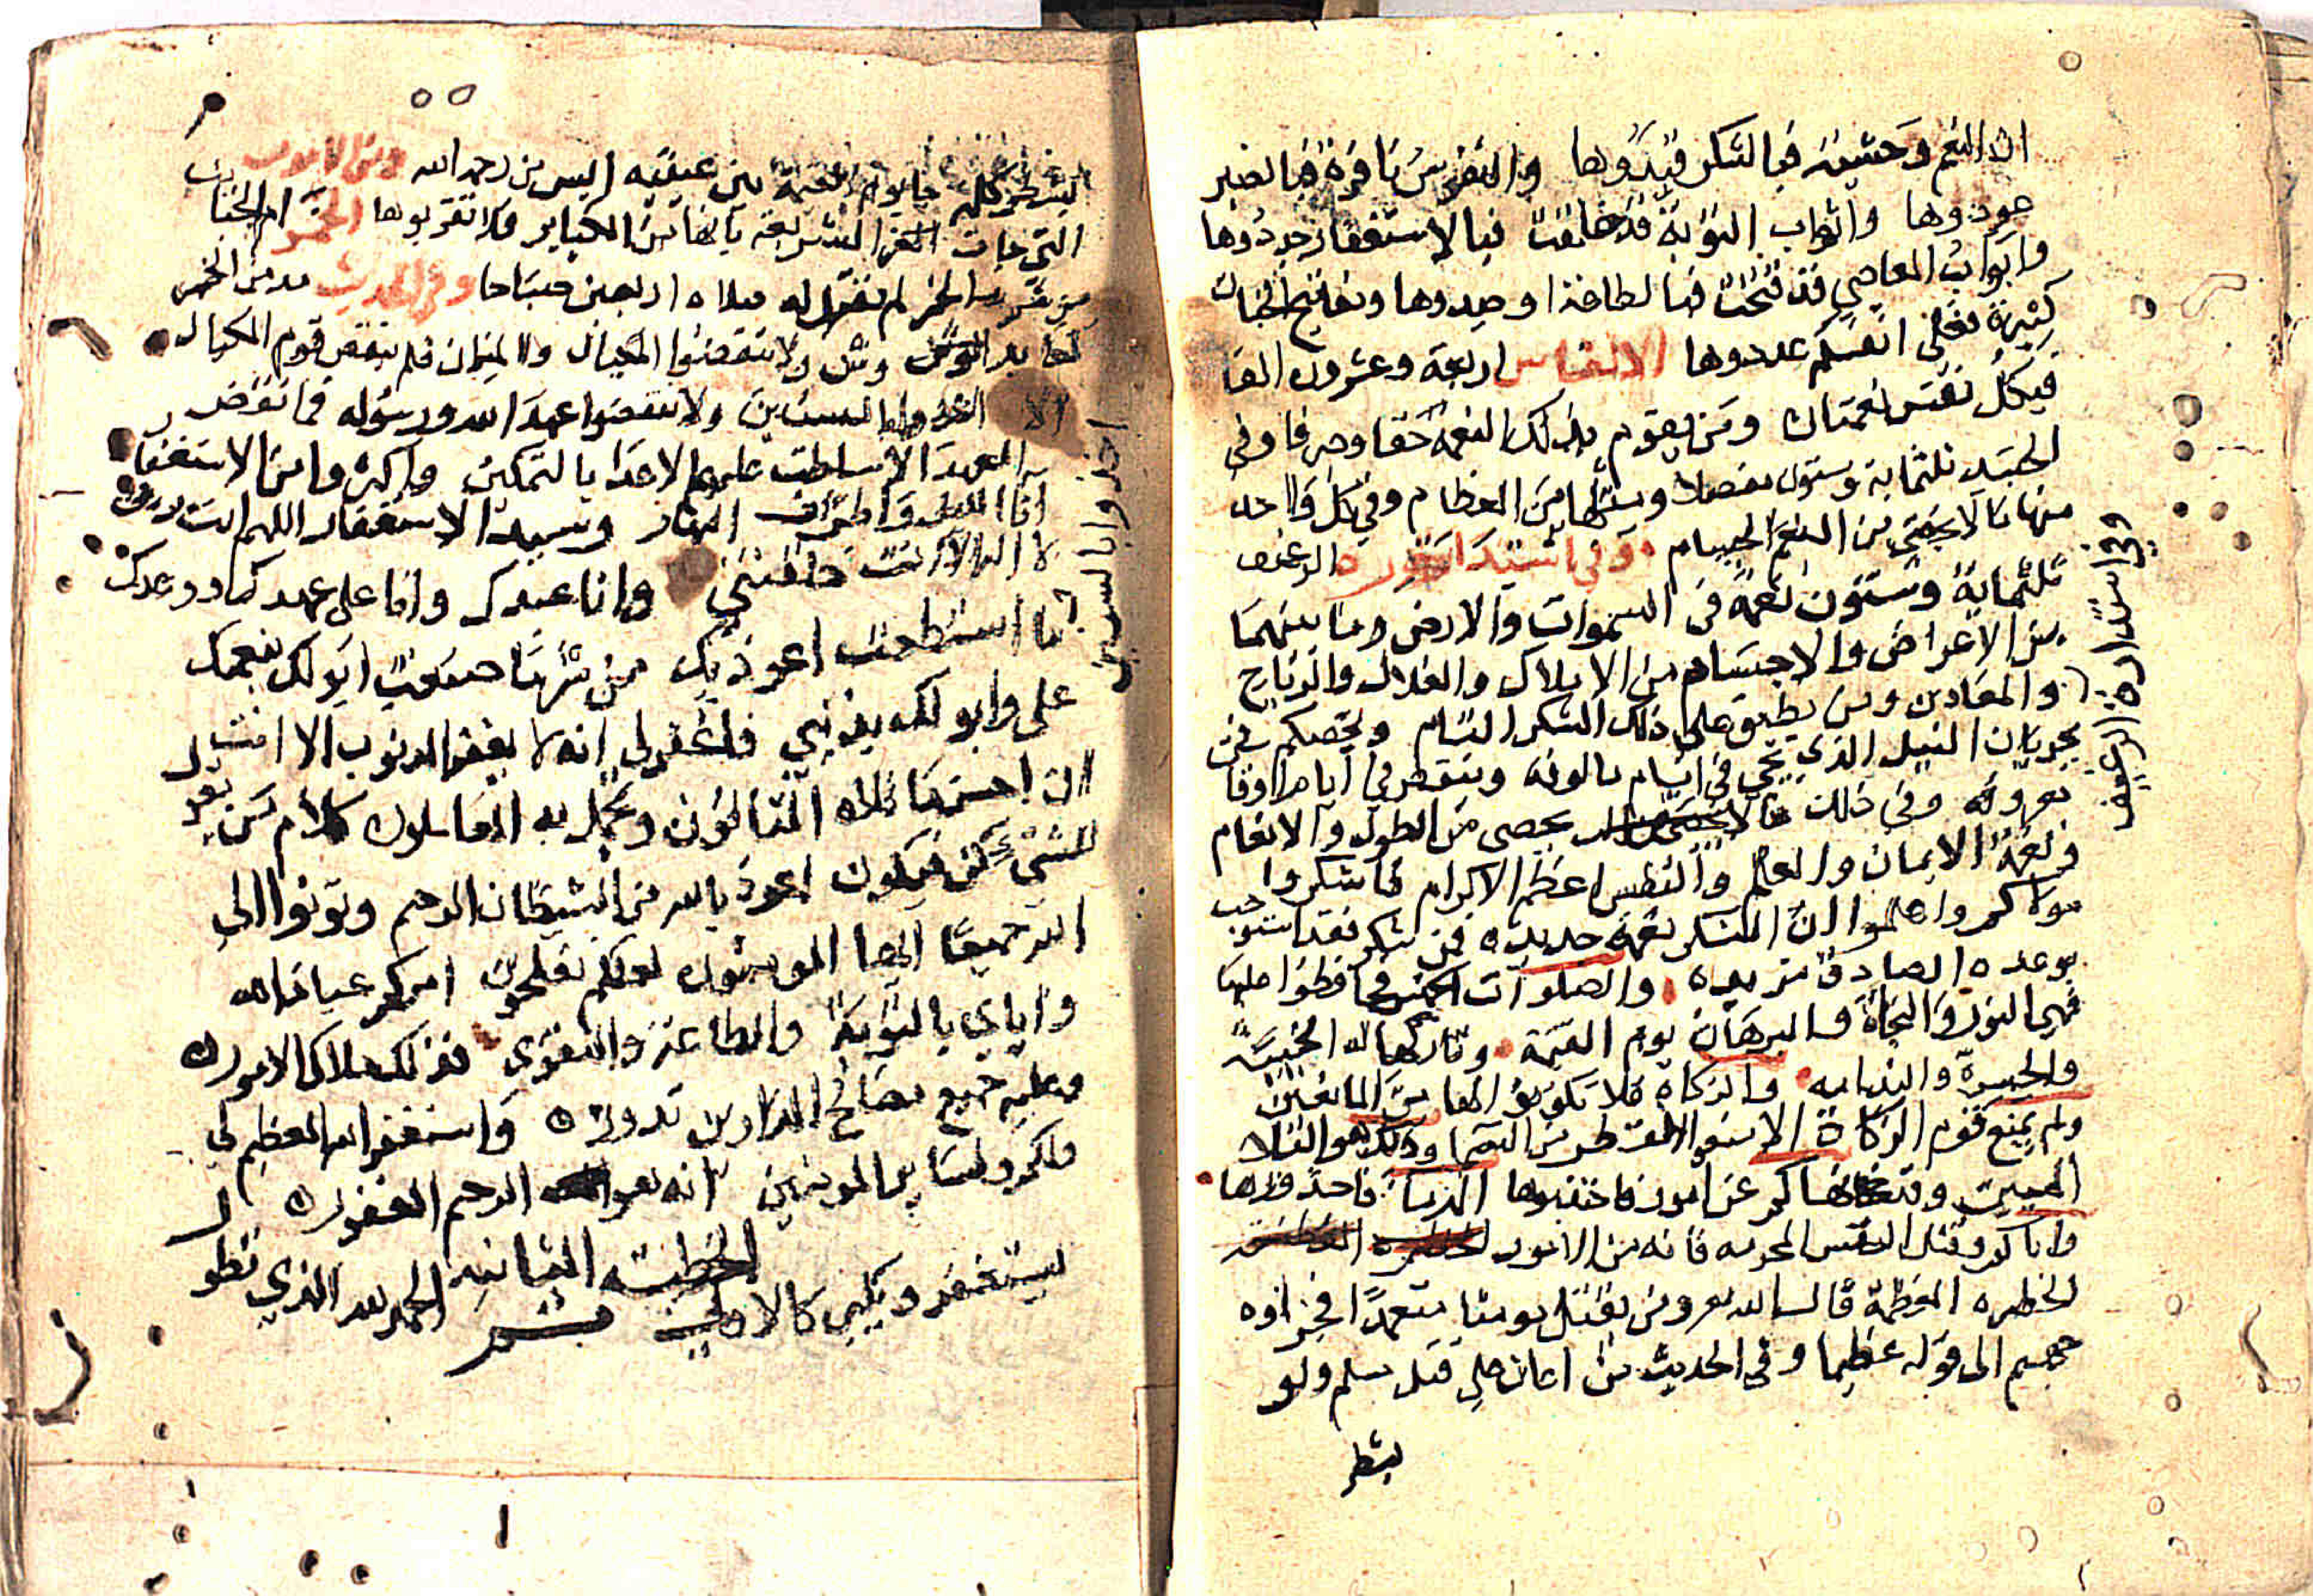 ان النعم وحشية فبالشكر قيدوها والنفوس نافرة فبالصبر
عودوها وابواب التوبة قد فبالاستغفار جددوها
وابواب المعاصي قد فتحت فبالطاعة اوصدوها ومفاتيح الخيرات
كثيرة فعلى انفسكم عددوها الانفاس اربعة وعشرون الفا
فبكل نفس نعمتان ومن يقوم بذلك النعمة حقا وصرفا وفي
الجسد ثلثماية وستون مفصلا ومثلها من العظام وفي كل واحد
منها ما لا يحصى من النعم الجسام وفي استدارة الرغيف
ثلثماية وستون نعمة في السموات والارض وما بينهما
من الاعراض والاجسام من الاملاك والافلاك والرياح
والمعادن ومن يطيق على ذلك الشكر التام ويخصكم فمن
بجريان النيل الذي يجي في ايام بالوفه وينقص في ايام اوفا
معروفه وفي ذلك ما لا يحصى من الطول والانعام
ونعمة الايمان والعلم والنطق اعظم الاكرام فاشكروا
مولاكم واعلموا ان الشكر نعمة جديده فمن شكر فقد استوجب
بوعده الصادق مزيده والصلوات الخمس فحافظوا عليها
فهي النور والنجاة والبرهان يوم القيمة وتاركها له الخيبة
والحسرة والندامه والزكاة فلا تكونوا لها من المانعين
ولم يمنع قوم الزكاة الا منعوا القطر من السما وذلك هو البلا
المبين وقد نهاكم عن امور فاجتنبوها الزنا فاحذروها
واياكم وقتل النفس المحرمه فانه من الامور
الخطره العظيمة قال الله ومن يقتل مومنا متعمدا فجزاوه
جهنم الى قوله عظيما وفي الحديث من اعان على قتل مسلم ولو
بشطر
وفي استدارة الرغيف
بشطر كلمة جا يوم القيمة بين عينيه ايس من رحمة الله ومن الامور
التي جات الشريعة بانها من الكباير فلا تقربوها الخمر ام الخبايث
من شرب الخمر لم تقبل له صلاه اربعين صباحا وفي الحديث مدمن الخمر
كعابد الوثن ولا تنقصوا المكيال والميزان فلم ينقص قوم المكيال
الا اخذوا بالسنين ولا تنقضوا عهد الله ورسوله فما نقض
العهد الا سلطت عليهم الاعدا بالتمكين واكثروا من الاستغفار
انا الليل واطراف النهار وسيد الاستغفار اللهم انت ربي
لا اله الا انت خلقتني وانا عبدك وانا على عهدك ووعدك
ما استطعت اعوذ بك من شر ما صنعت ابو لك بنعمتك
علي وابو لك بذنبي فاغفر لي انه لا يغفر الذنوب الا انت
ان احسن ما تلاه التالون وعمل به العاملون كلام من يقول
للشي كن فيكون اعوذ بالله من الشيطان الرجيم وتوبوا الى
الله جميعا ايها المومنون لعلكم تفلحون امركم عباد الله
واياي بالتوبة والطاعة والتقوى فذلك ملاك الامور
وعليه جميع مصالح الدارين تدور واستغفر الله العظيم لي
ولكم ولساير المومنين انه هو الرحيم الغفور
يستغفر ويكبر كالاولى الخطبة الثانيه الحمد لله الذي تطو
اخذوا بالسنين